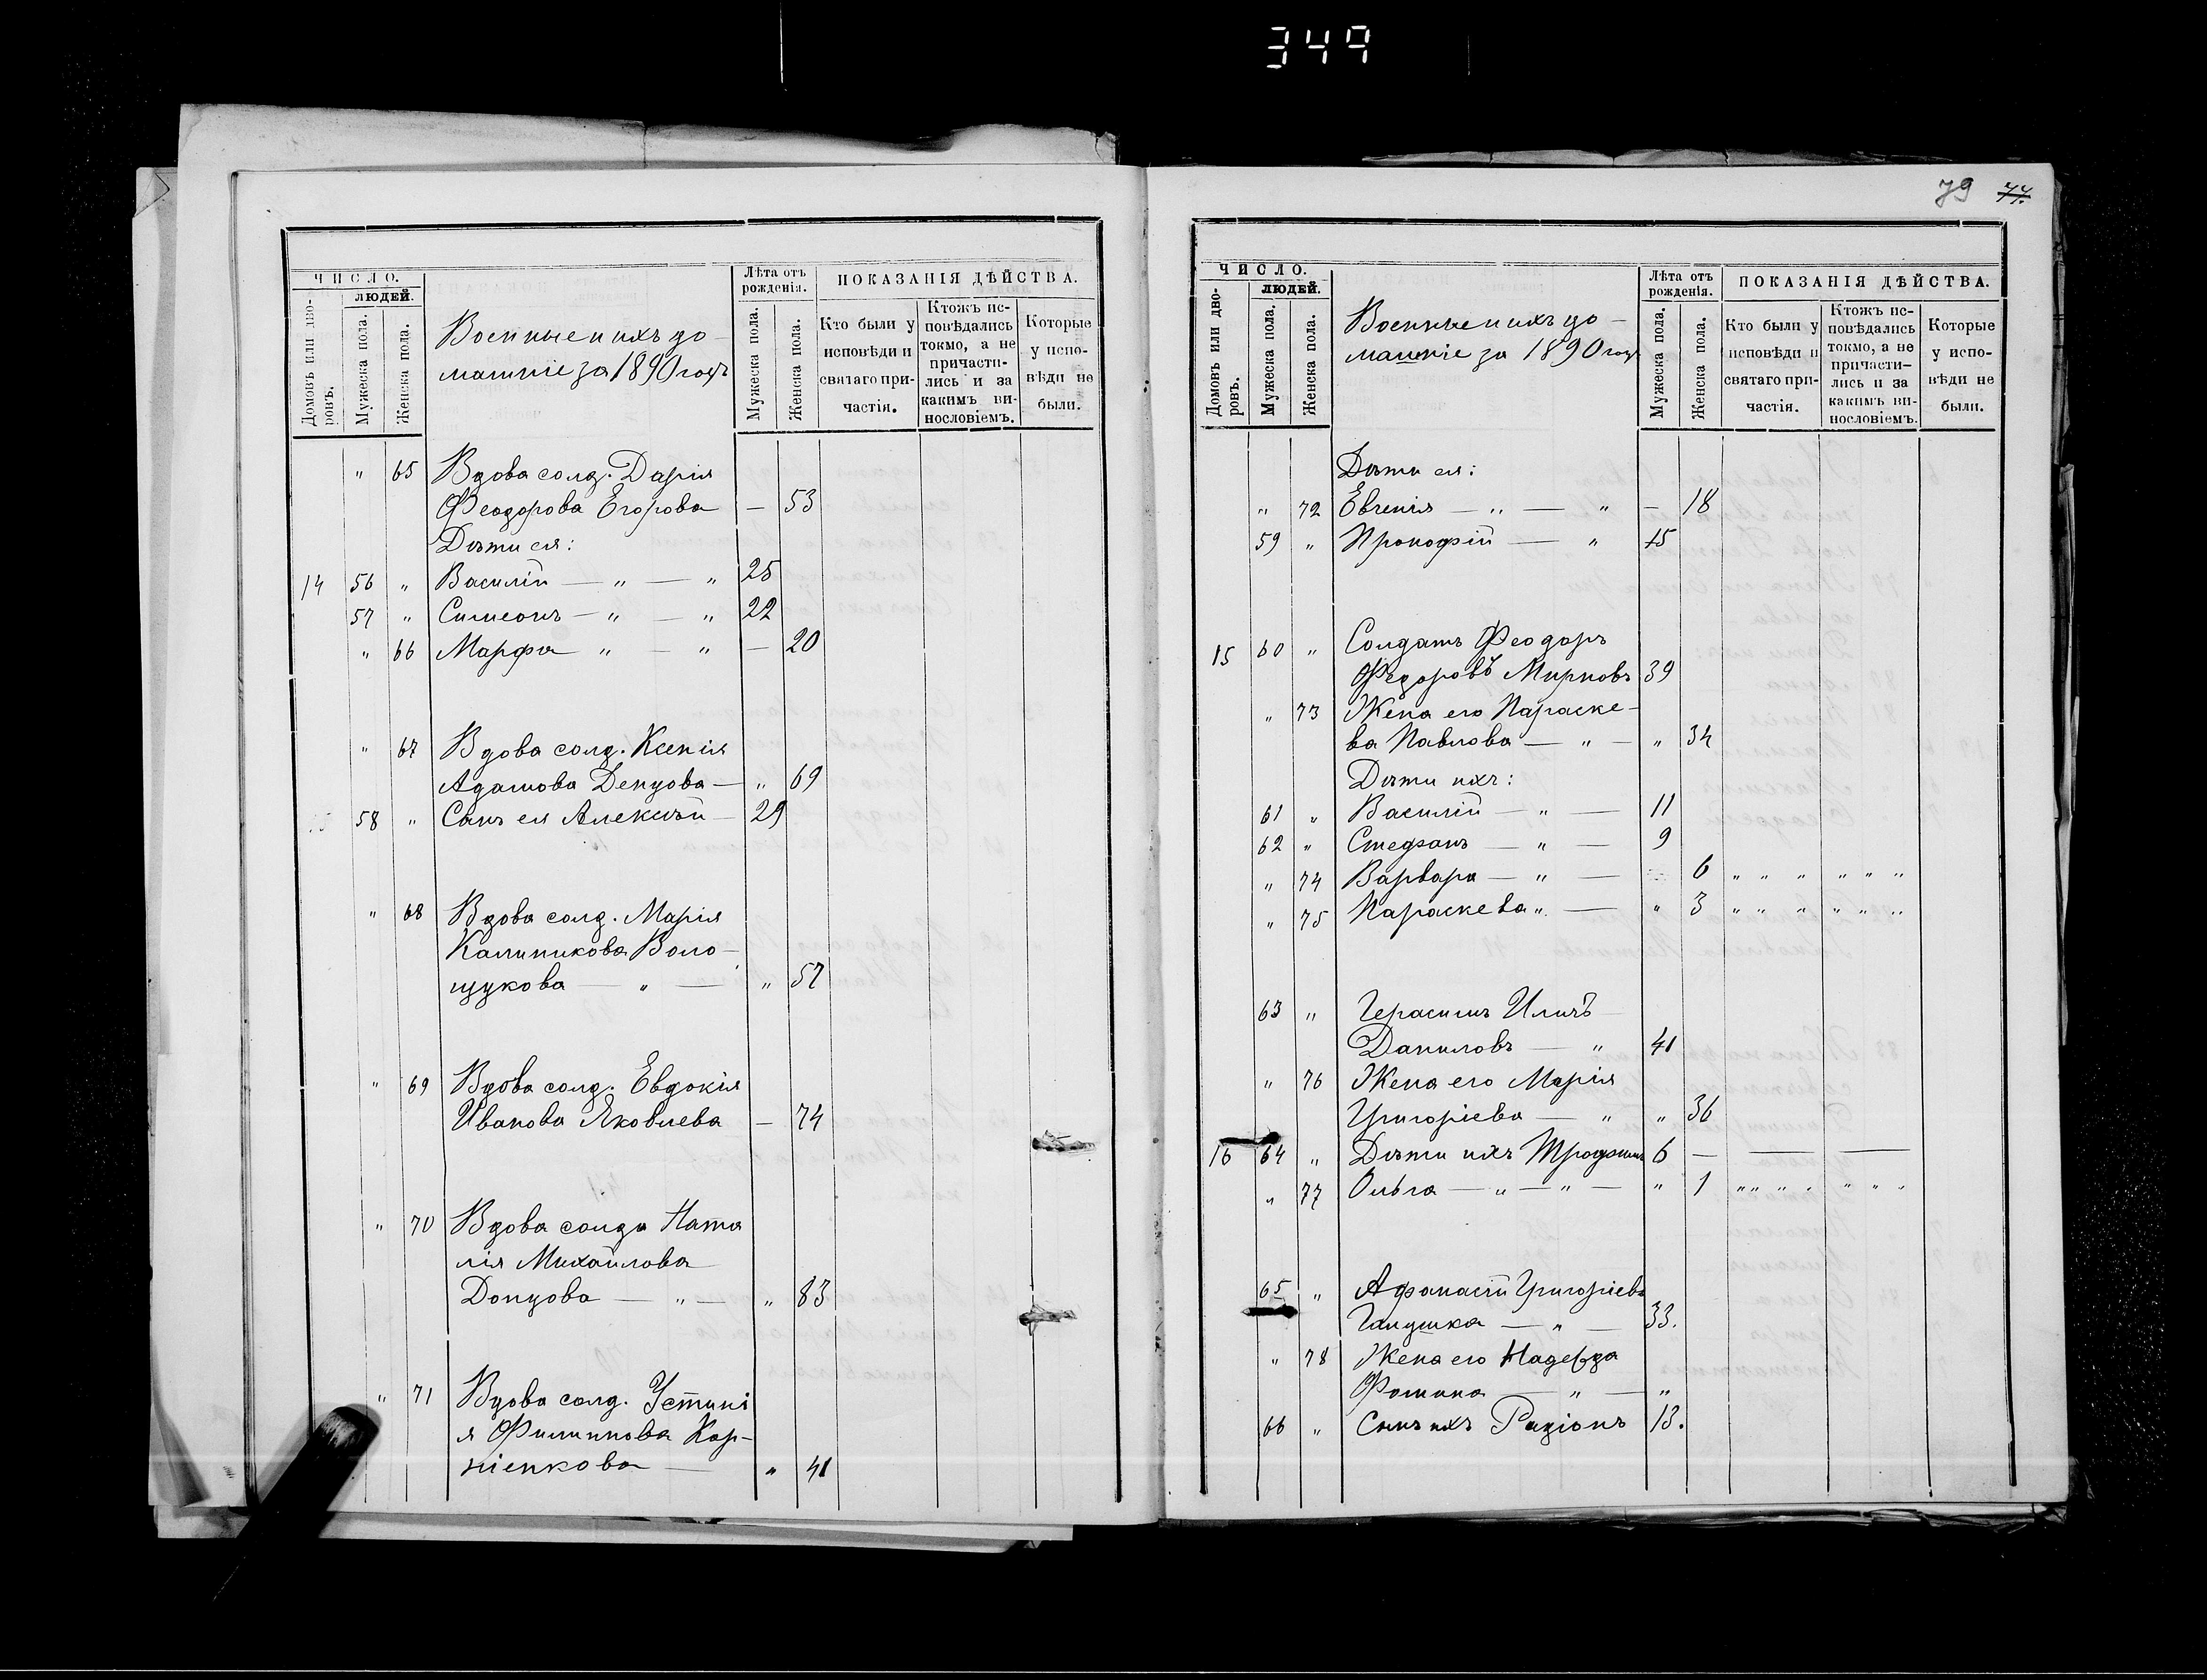 349
ЧИСЛО.
ЛЮДЕЙ.
Домовъ или дворовъ.
Мужеска пола.
Женска пола.
Военные и ихъ до-
машніе за 1890 годъ
Лѣта отъ рожденія.
Мужеска пола.
Женска пола.
ПОКАЗАНІЯ ДѢЙСТВА.
Кто были у исповѣди и святаго причастія.
Ктожъ исповѣдались токмо, а не причастились и за какимъ винословіемъ.
Которые у исповѣди не были.
" 65 Вдова солд. Дарія
Феодорова Егорова — 53
Дѣти ея:
14 56 " Василій — " — " 25
57 " Симеонъ — " — " 22
" 66 Марфа " — " — 20
" 67 Вдова солд. Ксенія
Адамова Денцова — " 69
58 " Сынъ ея Алексѣй — 29
" 68 Вдова солд. Марія
Калиникова Воло-
щукова — " — " 57
" 69 Вдова солд. Евдокія
Иванова Яковлева — 74
" 70 Вдова солда Ната
лія Михайлова
Донцова — " — " 83
" 71 Вдова солд. Устині
я Филиппова Кор-
ніенкова — " 41
79 77.
ЧИСЛО.
ЛЮДЕЙ.
Домовъ или дворовъ.
Мужеска пола.
Женска пола.
Военные и ихъ до-
машніе за 1890 годъ
Лѣта отъ рожденія.
Мужеска пола.
Женска пола.
ПОКАЗАНІЯ ДѢЙСТВА.
Кто были у исповѣди и святаго причастія.
Ктожъ исповѣдались токмо, а не причастились и за какимъ винословіемъ.
Которые у исповѣди не были.
Дѣти ея:
" 72 Евгенія — " — " — 18
59 " Прокофій — " 15
15 60 " Солдатъ Феодоръ
Федоровъ Мирновъ 39
" 73 Жена его Параске-
ва Павлова — " — " 34
Дѣти ихъ:
61 " Василій — " — 11
62 " Стефанъ — " — 9
" 74 Варвара — " — 6 " " " " " "
" 75 Параскева " — " 3 " " " " " "
63 " Герасимъ Иличъ
Даниловъ — " 41
" 76 Жена его Марія
Григоріева — " " 36
16 64 " Дѣти ихъ Трофимъ 6 — — —
" 77 Ольга — " — " — " 1 " " " " " " "
65 " Афанасій Григоріевъ
Галушка — " — 33.
" 78 Жена его Надежда
Фомина — " — "
66 " Сынъ ихъ Радіонъ 13.